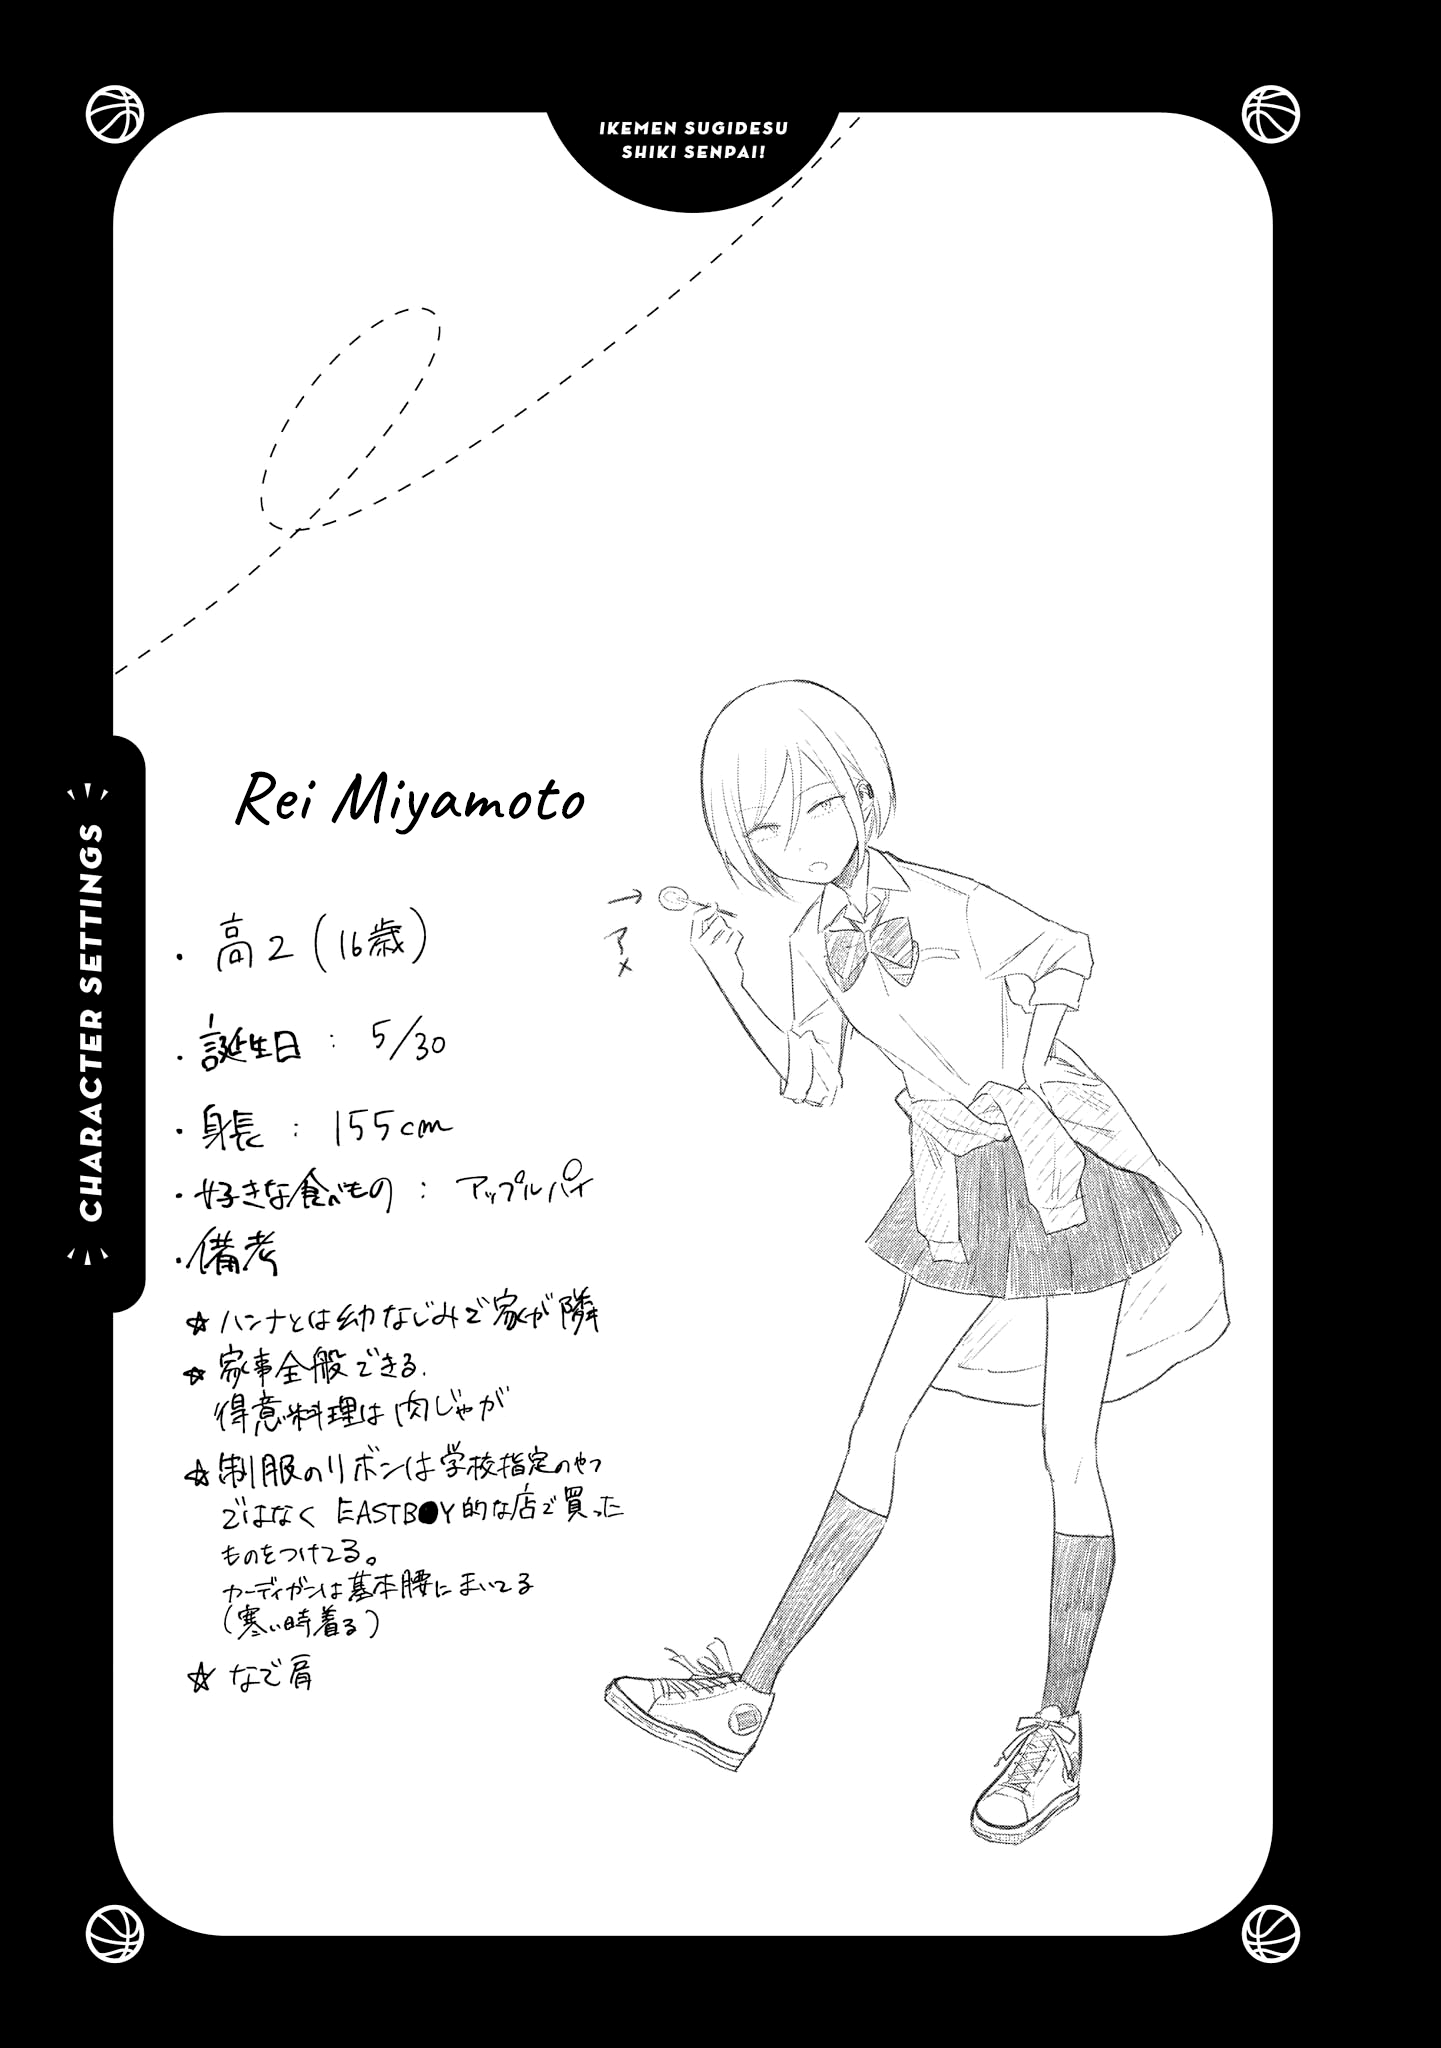 IKEMEN SUGIDESU
SHIKI SENPAI!
CHARACTER SETTINGS
Rei Miyamoto
→
アメ
・高2(16歳)
・誕生日:5/30
・身長:155cm
・好きな食べもの:アップルパイ
・備考
☆ハンナとは幼なじみで家が隣
☆家事全般できる.
得意料理は肉じゃが
☆制服のリボンは学校指定のやつ
ではなく EASTB●Y的な店で買った
ものをつけてる。
カーディガンは基本腰にまいてる
(寒い時着る)
☆なで肩